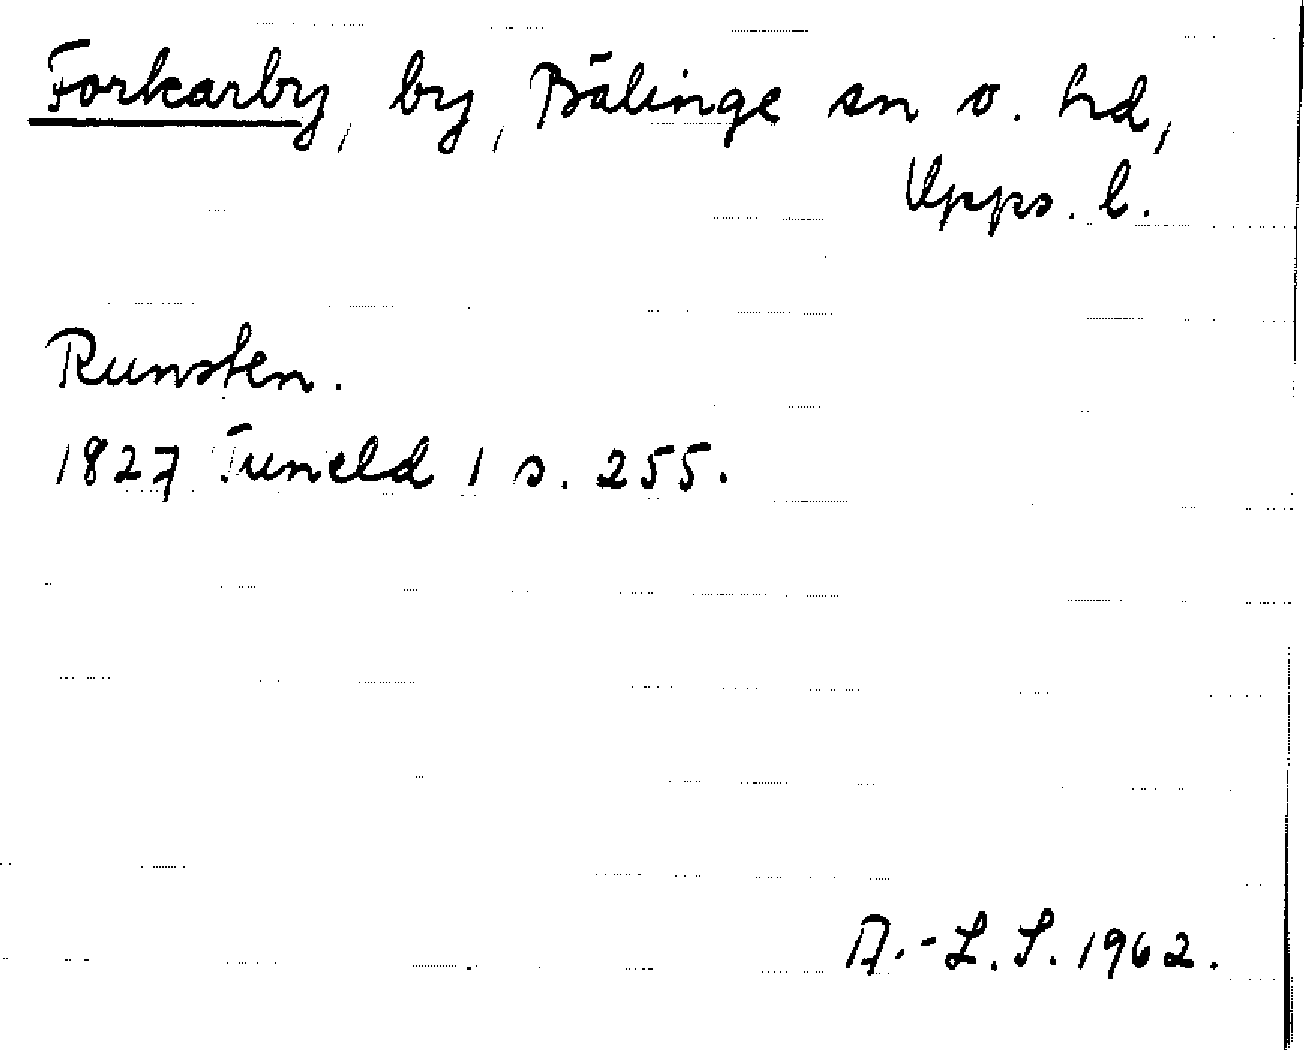 Forkarby, by, Bälinge sn o. hd,
Upps. l.
Runsten.
1827 Tuneld 1 s. 255.
A.-L. S. 1962.